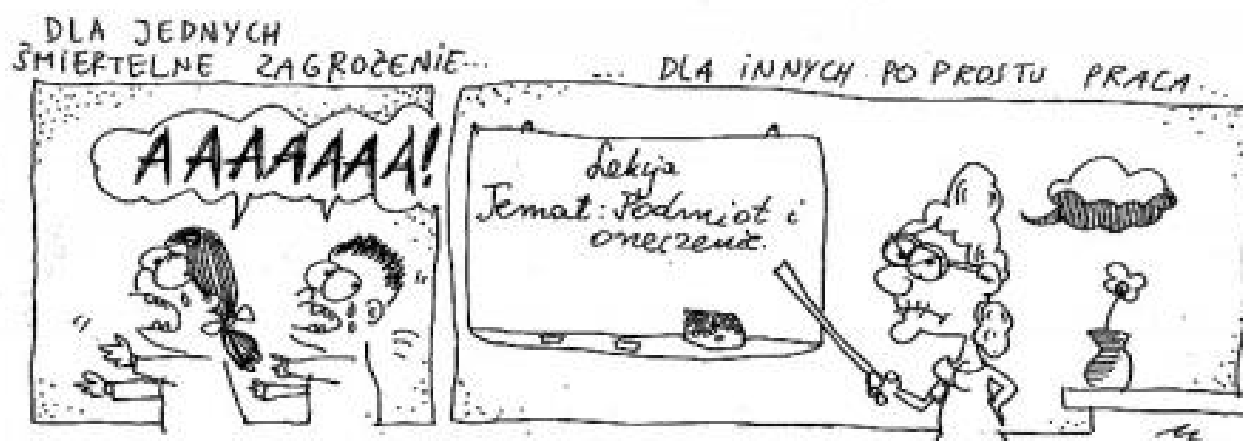 DLA JEDNYCH
ŚMIERTELNE ZAGROŻENIE...
AAAAAAA!
... DLA INNYCH PO PROSTU PRACA...
Lekcja
Temat: Podmiot i
orzeczenie.